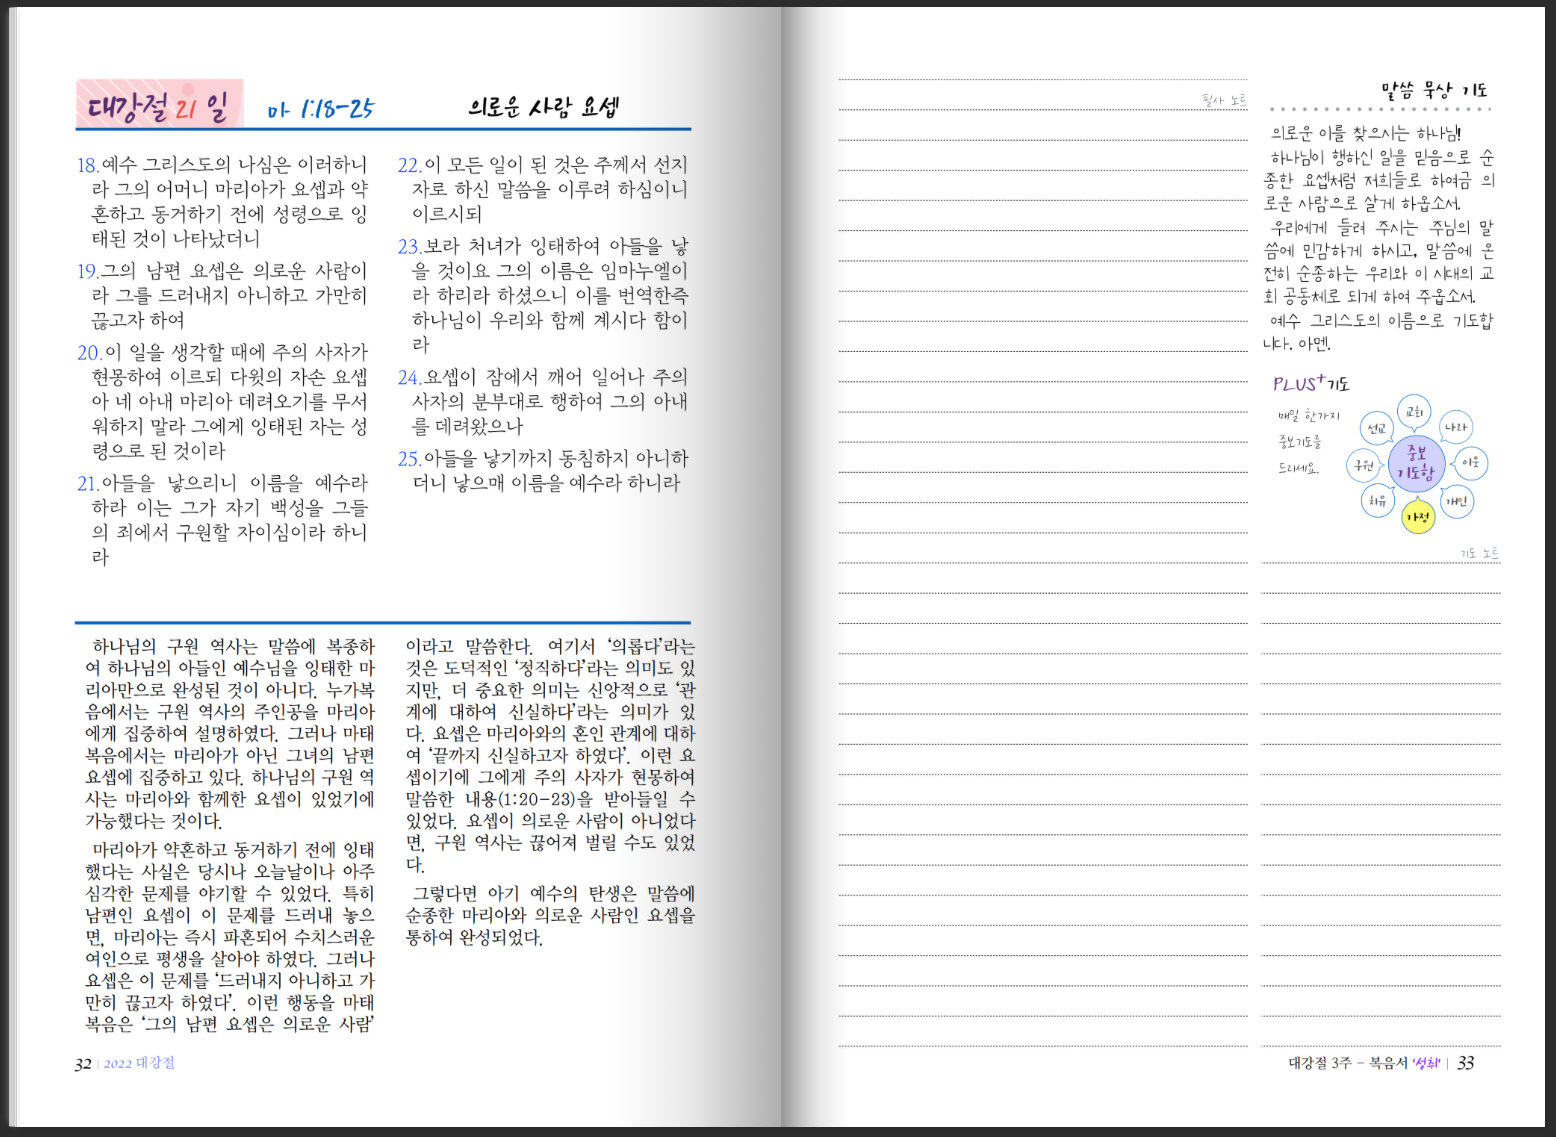 대강절 21 일
마 1:18-25
의로운 사람 요셉
18.예수 그리스도의 나심은 이러하니
라 그의 어머니 마리아가 요셉과 약
혼하고 동거하기 전에 성령으로 잉
태된 것이 나타났더니
19.그의 남편 요셉은 의로운 사람이
라 그를 드러내지 아니하고 가만히
끊고자 하여
20.이 일을 생각할 때에 주의 사자가
현몽하여 이르되 다윗의 자손 요셉
아 네 아내 마리아 데려오기를 무서
워하지 말라 그에게 잉태된 자는 성
령으로 된 것이라
21.아들을 낳으리니 이름을 예수라
하라 이는 그가 자기 백성을 그들
의 죄에서 구원할 자이심이라 하니
라
22.이 모든 일이 된 것은 주께서 선지
자로 하신 말씀을 이루려 하심이니
이르시되
23.보라 처녀가 잉태하여 아들을 낳
을 것이요 그의 이름은 임마누엘이
라 하리라 하셨으니 이를 번역한즉
하나님이 우리와 함께 계시다 함이
라
24.요셉이 잠에서 깨어 일어나 주의
사자의 분부대로 행하여 그의 아내
를 데려왔으나
25.아들을 낳기까지 동침하지 아니하
더니 낳으매 이름을 예수라 하니라
하나님의 구원 역사는 말씀에 복종하
여 하나님의 아들인 예수님을 잉태한 마
리아만으로 완성된 것이 아니다. 누가복
음에서는 구원 역사의 주인공을 마리아
에게 집중하여 설명하였다. 그러나 마태
복음에서는 마리아가 아닌 그녀의 남편
요셉에 집중하고 있다. 하나님의 구원 역
사는 마리아와 함께한 요셉이 있었기에
가능했다는 것이다.
마리아가 약혼하고 동거하기 전에 잉태
했다는 사실은 당시나 오늘날이나 아주
심각한 문제를 야기할 수 있었다. 특히
남편인 요셉이 이 문제를 드러내 놓으
면, 마리아는 즉시 파혼되어 수치스러운
여인으로 평생을 살아야 하였다. 그러나
요셉은 이 문제를 ‘드러내지 아니하고 가
만히 끊고자 하였다’. 이런 행동을 마태
복음은 ‘그의 남편 요셉은 의로운 사람’
이라고 말씀한다. 여기서 ‘의롭다’라는
것은 도덕적인 ‘정직하다’라는 의미도 있
지만, 더 중요한 의미는 신앙적으로 ‘관
계에 대하여 신실하다’라는 의미가 있
다. 요셉은 마리아와의 혼인 관계에 대하
여 ‘끝까지 신실하고자 하였다’. 이런 요
셉이기에 그에게 주의 사자가 현몽하여
말씀한 내용(1:20-23)을 받아들일 수
있었다. 요셉이 의로운 사람이 아니었다
면, 구원 역사는 끊어져 버릴 수도 있었
다.
그렇다면 아기 예수의 탄생은 말씀에
순종한 마리아와 의로운 사람인 요셉을
통하여 완성되었다.
32 | 2022 대강절
필사 노트
말씀 묵상 기도
의로운 이를 찾으시는 하나님!
하나님이 행하신 일을 믿음으로 순
종한 요셉처럼 저희들로 하여금 의
로운 사람으로 살게 하옵소서.
우리에게 들려 주시는 주님의 말
씀에 민감하게 하시고, 말씀에 온
전히 순종하는 우리와 이 시대의 교
회 공동체로 되게 하여 주옵소서.
예수 그리스도의 이름으로 기도합
니다. 아멘.
PLUS+기도
매일 한가지
중보기도를
드리세요.
교회
나라
이웃
개인
가정
치유
구원
선교
중보
기도함
기도 노트
대강절 3주 - 복음서 '성취' | 33